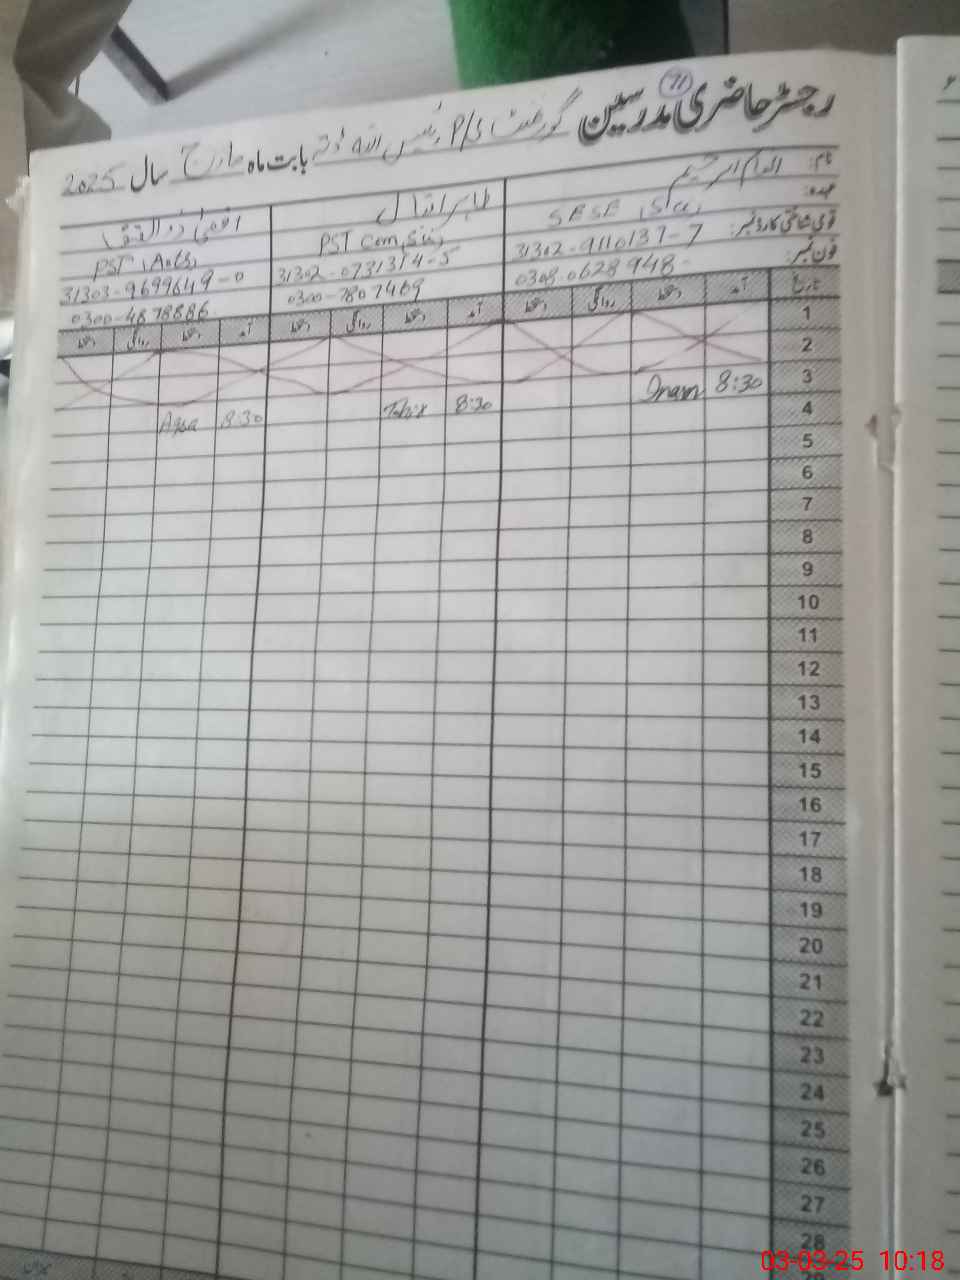 71
رجسٹر حاضری مدرسین گورنمنٹ P/s رئیس اللہ بابت ماہ مارچ سال 2025
نام:
عہدہ: SESE
PST Com, Sci,
PST (Arts)
قومی شناختی کارڈ نمبر: 31302-9110137-7
31302-0731314-5
31303-9699649-0
فون نمبر: 0308-0628948-
0300-7807469
0300-4878886
تاریخ آمد دستخط روانگی دستخط آمد دستخط روانگی دستخط آمد دستخط روانگی دستخط
1
2
3 8:30 Inam 8:30 Tahir 8:30 Aqsa
4
5
6
7
8
9
10
11
12
13
14
15
16
17
18
19
20
21
22
23
24
25
26
27
28
03-03-25 10:18